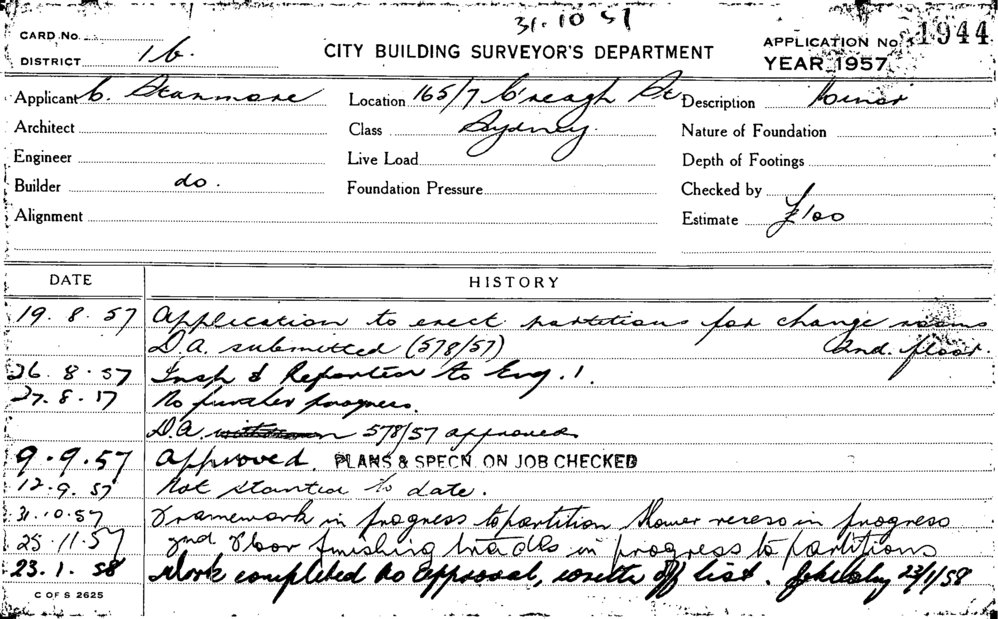 31.10.57
CARD No.
DISTRICT 1b.
CITY BUILDING SURVEYOR'S DEPARTMENT
APPLICATION No. 1944
YEAR 1957
Applicant C. Stanmore
Location 165/7 C'reagh St
Description Minor
Architect
Class Sydney.
Nature of Foundation
Engineer
Live Load
Depth of Footings
Builder do.
Foundation Pressure
Checked by
Alignment
Estimate £100
DATE HISTORY
19.8.57 Application to erect partitions for change rooms
D.A. submitted (578/57) 2nd. floor.
26.8.57 Insp & Reported to Eng. 1.
27.8.57 No further progress.
D.A. withdrawn 578/57 approved
9.9.57 Approved. PLANS & SPECN. ON JOB CHECKED
12.9.57 Not started to date.
31.10.57 Framework in progress to partition shower in progress
25.11.57 2nd Floor finishing trades in progress to partitions
23.1.58 Work completed to approval, write off list. 23/1/58
C OF S 2625